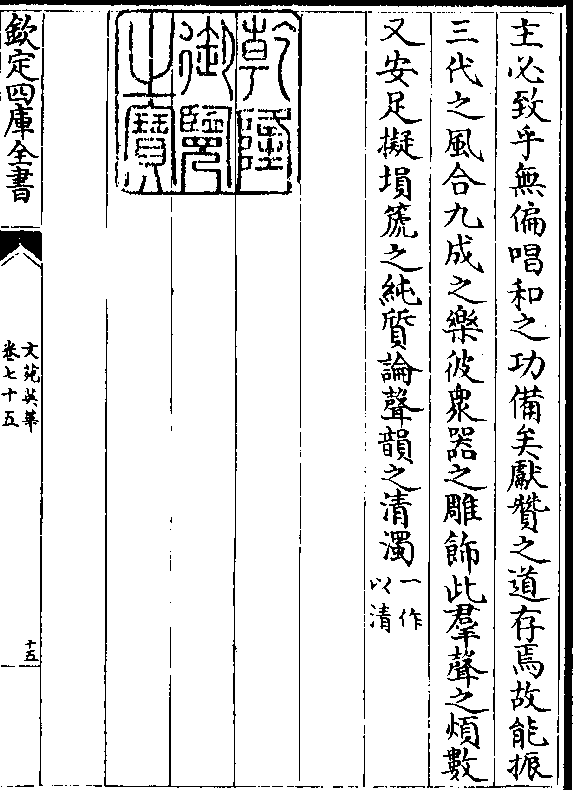 主必致乎無偏唱和之功備矣獻贊之道存焉故能振
三代之風合九成之樂彼衆器之雕飾此羣聲之煩數
又安足擬塤篪之純質論聲韻之清濁一作以清
乾隆御覽之寶
欽定四庫全書
文苑英華
卷七十五
十五